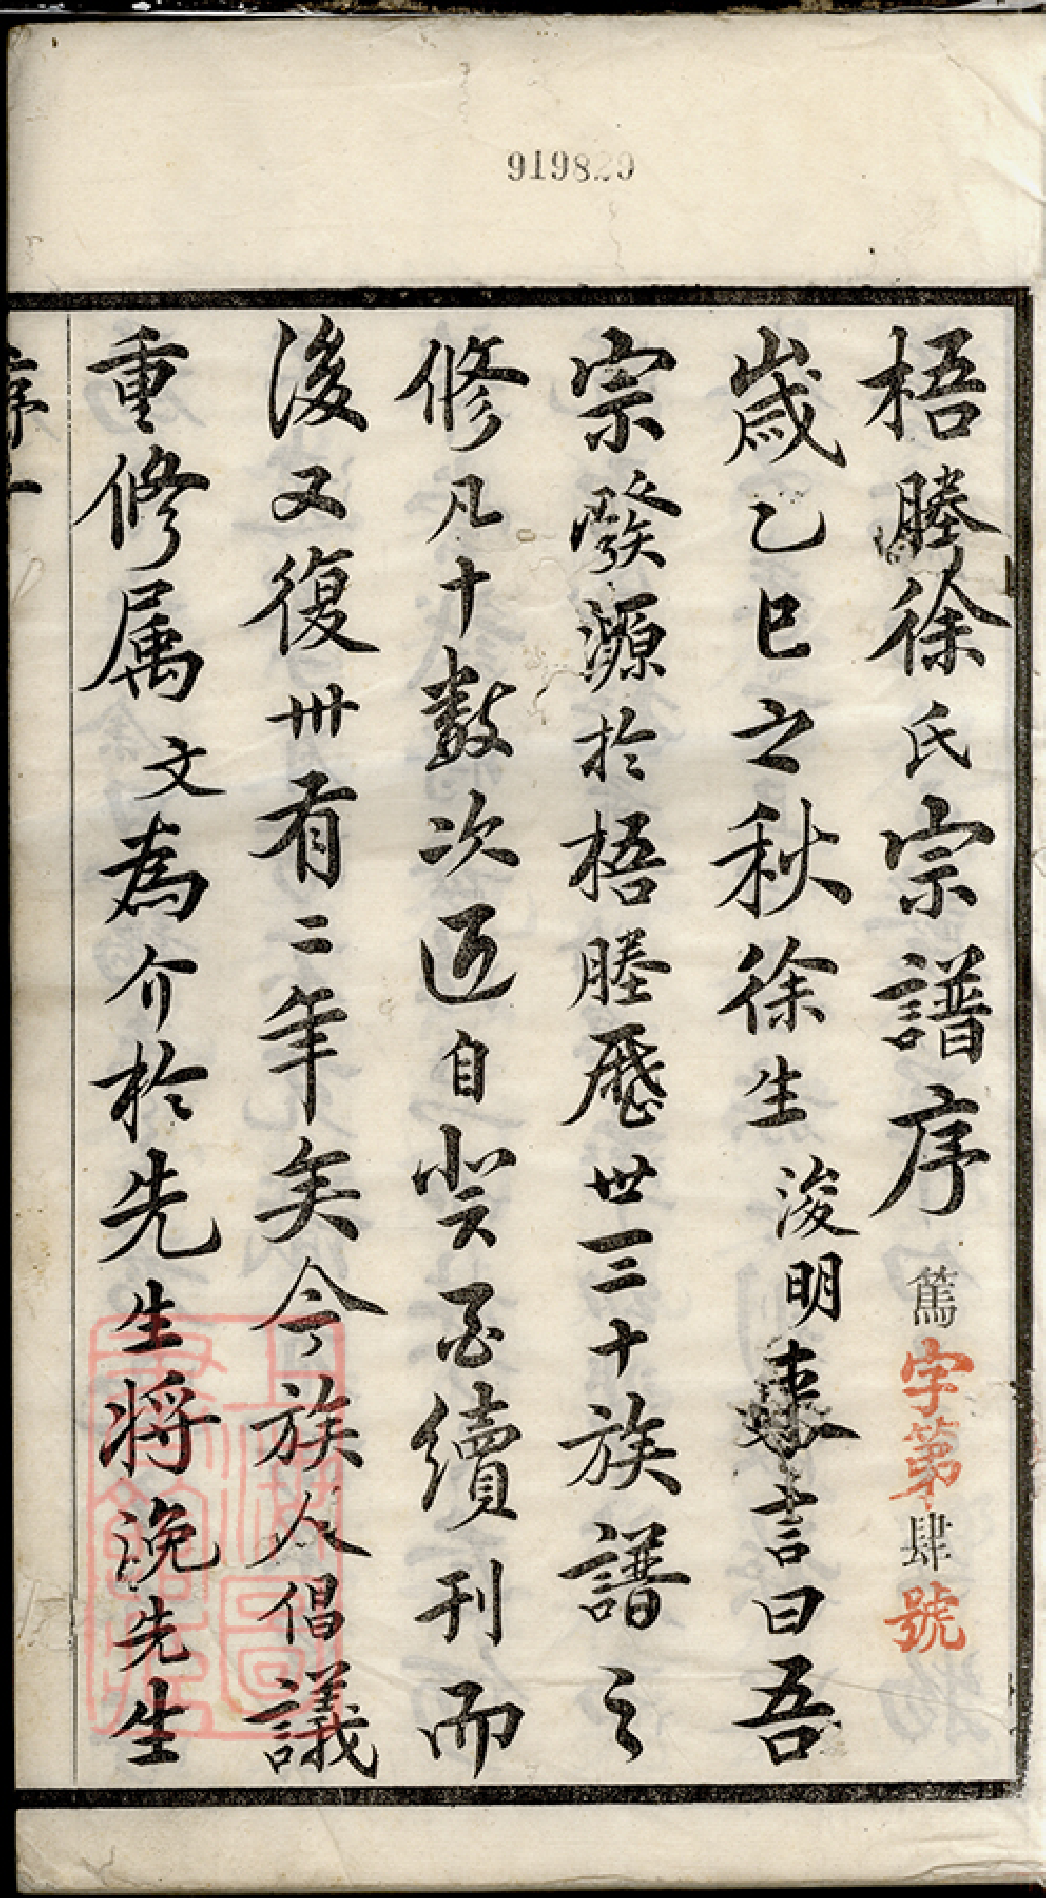 919829
梧塍徐氏宗譜序 篤字第肆號
歲乙巳之秋徐生浚明來言曰吾
宗發源於梧塍歷世三十族譜之
修凡十數次近自癸酉續刊而
後又復卅有二年矣今族人倡議
重修属文為介於先生將浼先生
序一
上海圖書館藏